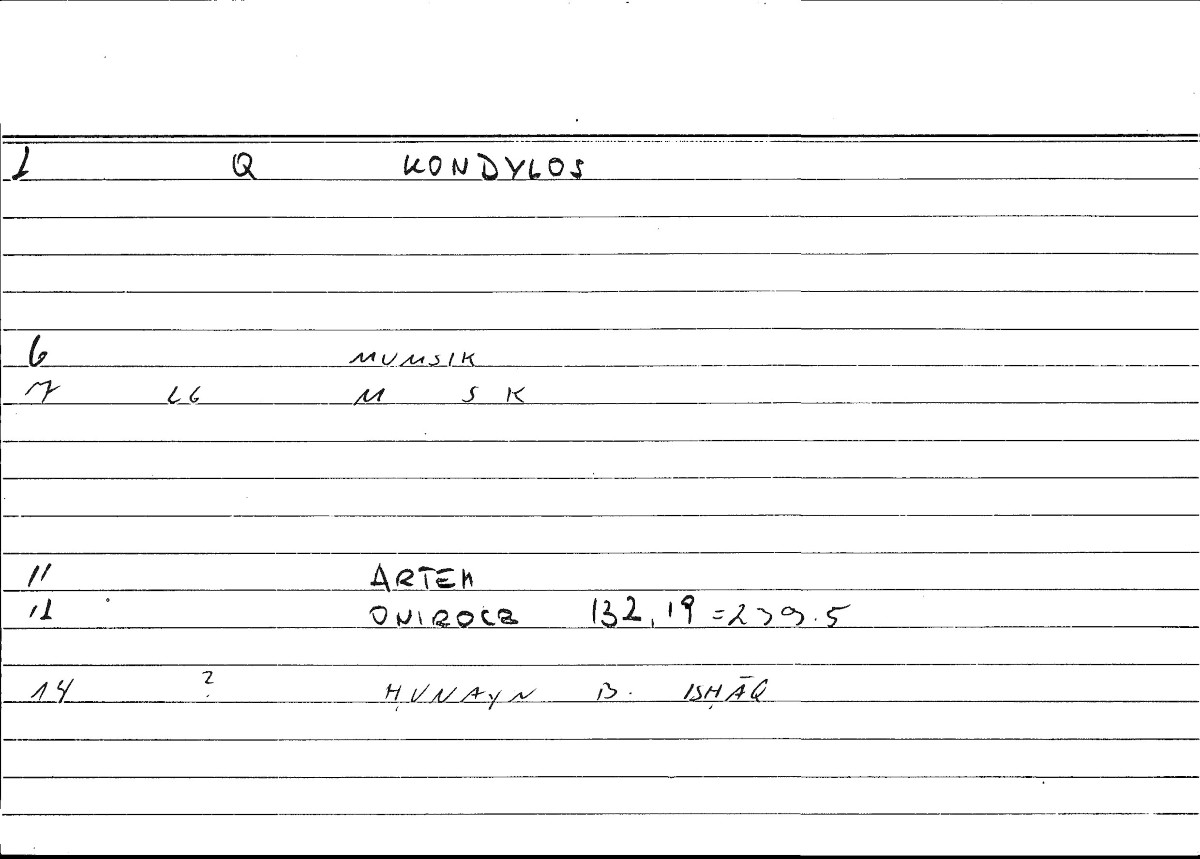 1 Q KONDYLOS
6 MUMSIK
7 LG M S K
11 ARTEM
12 ONIROCR 132,19 =239.5
14 ? ḤUNAYN B. ISḤĀQ